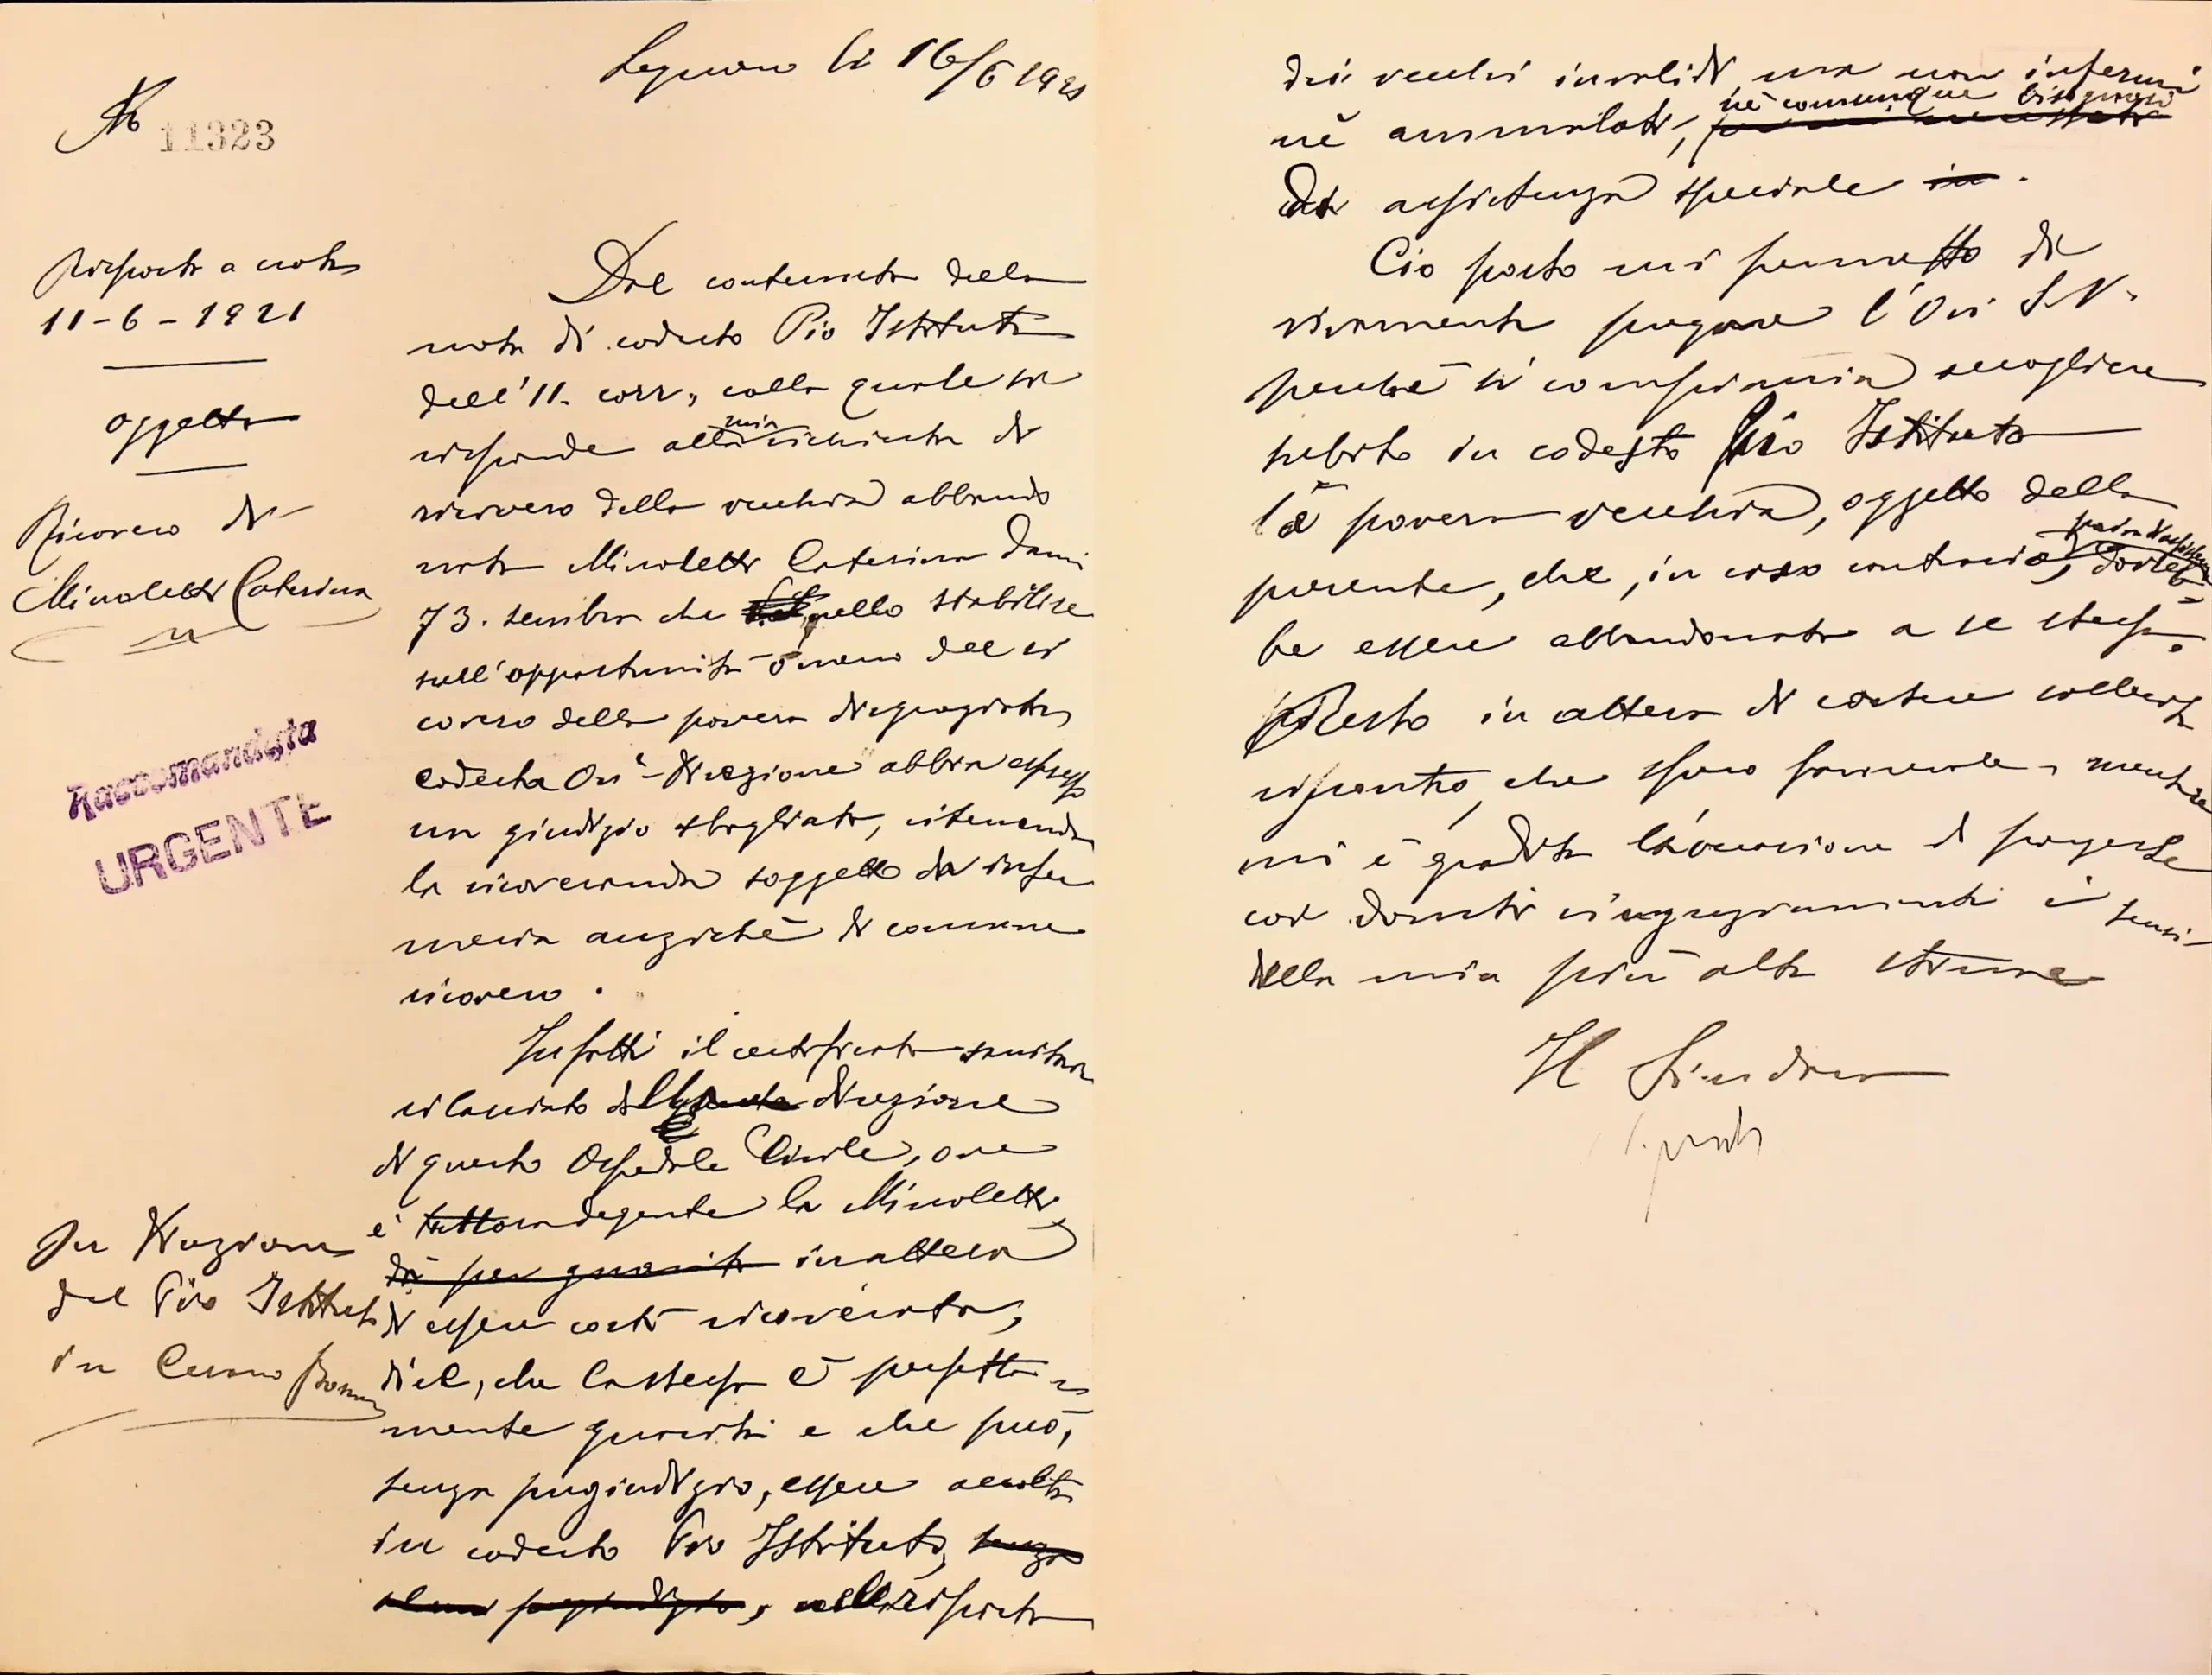 Legnano li 16/6 1921
N 11323
Risposta a nota
11-6-1921
Oggetto
Ricovero di
Minoletti Caterina
Raccomandata
URGENTE
Alla Direzione
del Pio Istituto
in Cesano Boscone
Dal contenuto della
nota di codesto Pio Istituto
dell'11. corr., colla quale si
risponde alla mia richiesta di
ricovero della vecchia abbando
nata Minoletti Caterina d'anni
73. sembra che nello stabilire
sull'opportunità o meno del ri
covero della povera disgraziata,
codesta On. Direzione abbia espresso
un giudizio sbagliato, ritenendo
la ricoveranda soggetto da infer
meria anziché di comune
ricovero.
Infatti il certificato sanitario
rilasciato dalla Direzione
di questo Ospedale Civile, ove
è tuttora degente la Minoletti
già per guarita in attesa
di essere costì ricoverata,
dice, che la stessa è perfetta=
mente guarita e che può,
senza pregiudizio, essere accolta
in codesto Pio Istituto, senza
alcun pregiudizio, nel reparto
dei vecchi invalidi ma non infermi
nè ammalati, nè comunque bisognosi
di assistenza speciale in.
Ciò posto mi permetto di
vivamente pregare l'On S.V.
perché si compiaccia accogliere
subito in codesto Pio Istituto
la povera vecchia, oggetto della
presente, che, in caso contrario, priva di assistenza dovreb-
be essere abbandonata a se stessa.
Resto in attesa di cortese sollecito
riscontro, che spero favorevole, mentre
mi è gradita l'occasione di porgerle
coi dovuti ringraziamenti i sensi
della mia più alta stima
Il Sindaco